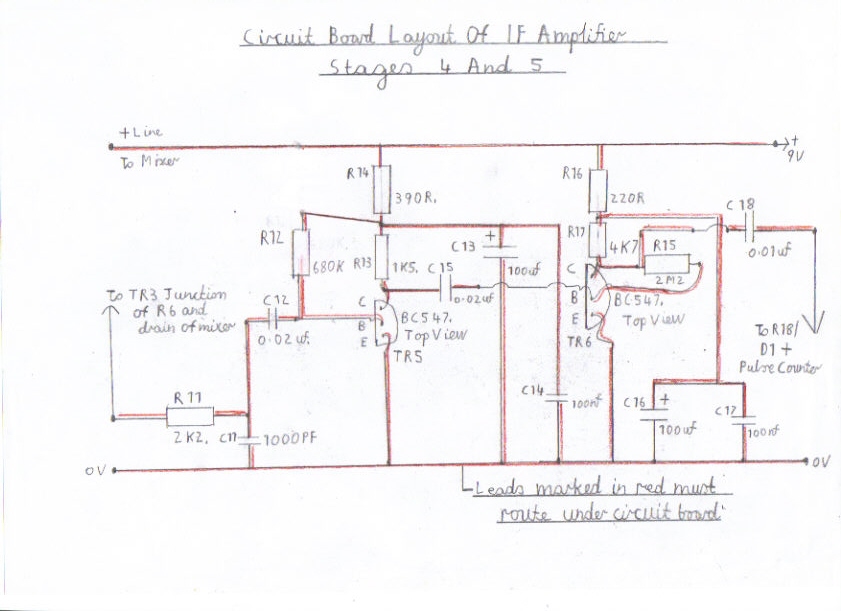 Circuit Board Layout Of IF Amplifier
Stages 4 And 5
+Line
To Mixer
+
9V
R14
390R.
R16
220R
C18
0.01uf
R12
680K
R13
1K5.
C13
+
100uf
R17
4K7
R15
2M2
C15
0.02uf
To TR3 Junction
of R6 and
drain of mixer
C12
0.02uf.
C
B
E
BC547.
Top View
TR5
C
B
E
BC547.
Top View
TR6
To R18/
D1 +
Pulse Counter
R11
2K2.
C11
1000PF
C14
100nf
C16
+
100uf
C17
100nf
0V
0V
Leads marked in red must
route under circuit board